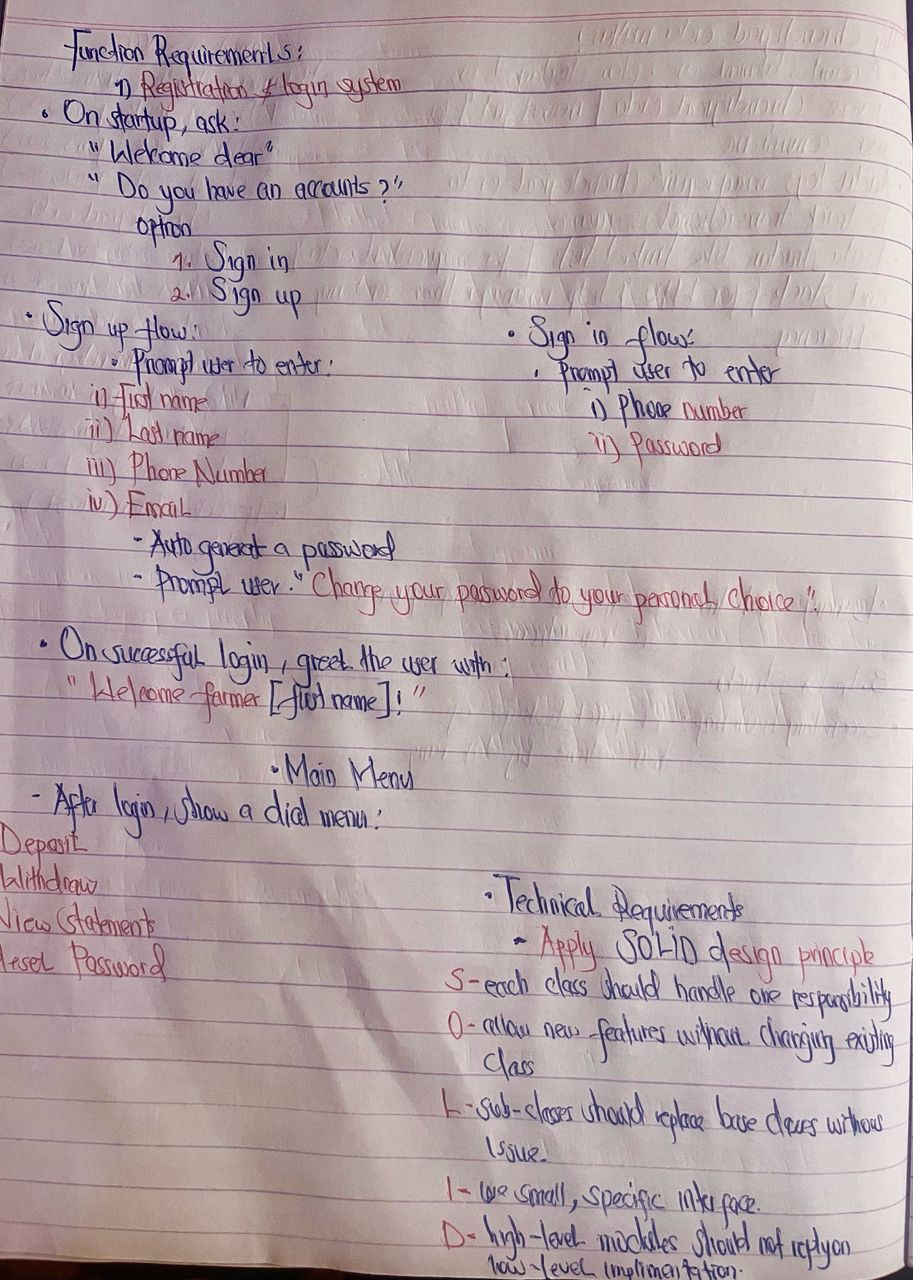 Function Requirements:
1) Registration & login system
• On startup, ask:
" Welcome dear"
" Do you have an accounts?"
option
1. Sign in
2. Sign up
• Sign up flow:
• Prompt user to enter:
i) first name
ii) Last name
iii) Phone Number
iv) Email
- Auto generat a password
- Prompt user: "Change your password to your personal choice".
• Sign in flow:
• Prompt user to enter
i) Phone number
ii) Password
• On successful login, greet the user with:
" Welcome farmer [first name]!"
• Main Menu
- After login, show a dial menu:
Deposit
Withdraw
View Statements
Reset Password
• Technical Requirements
- Apply SOLiD design principle
S- each class should handle one responsibility
O- allow new features without changing existing
class
L- sub-classes should replace base classes without
issue.
I- use small, specific interface.
D- high-level modules should not reply on
low-level implimentation.